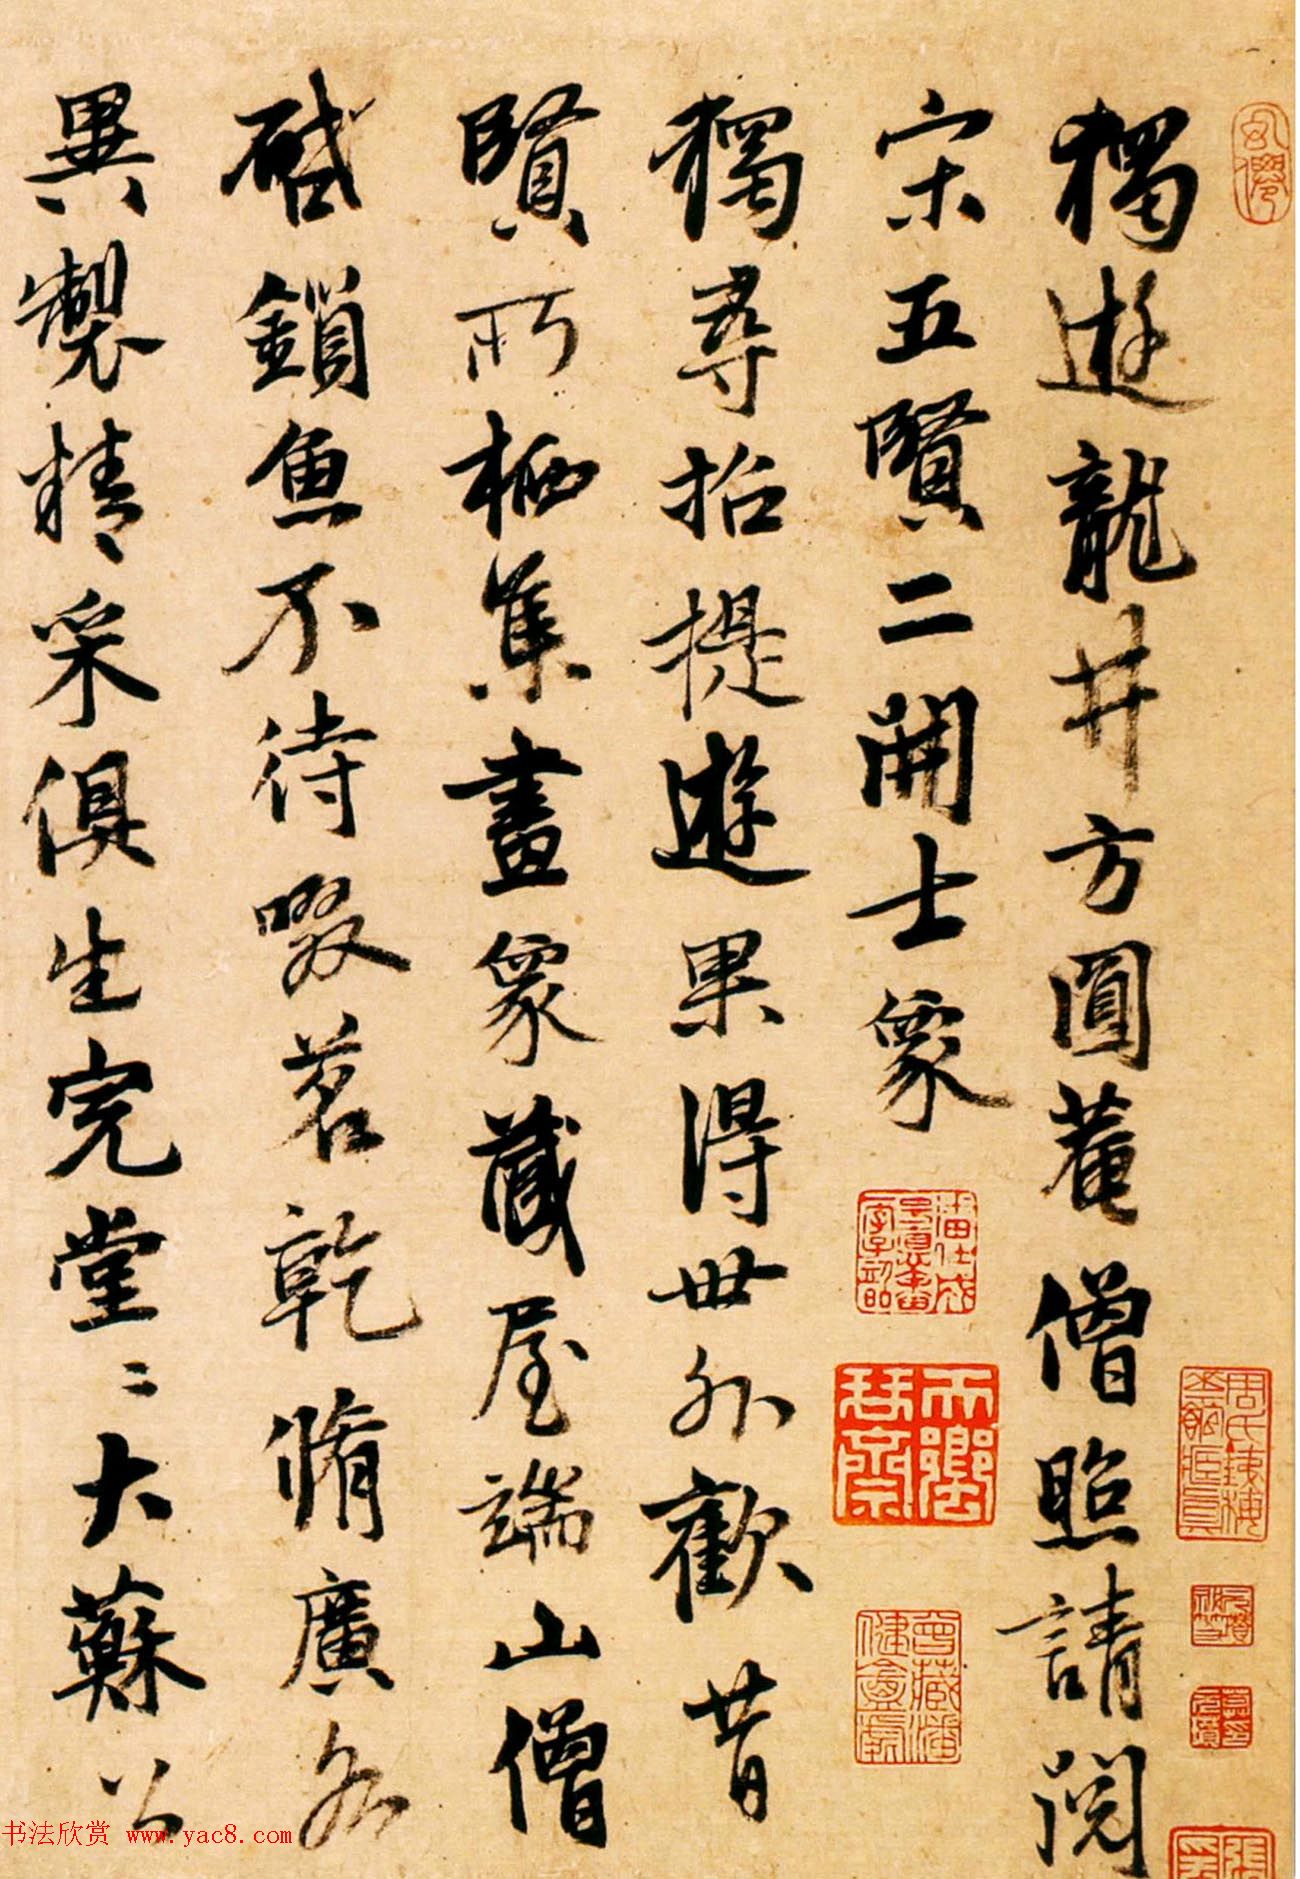 獨遊龍井方圓菴僧照請閱
宋五賢二開士象
獨尋招提遊果得世外歡昔
賢所栖集畫象藏屋端山僧
啟鎖魚不待啜茗乾脩廣各
異製精采俱生完堂〻大蘇公
書法欣赏 www.yac8.com